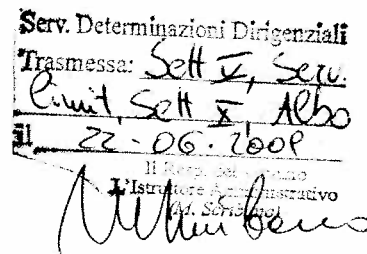 Serv. Determinazioni Dirigenziali
Trasmessa: Sett V, Serv.
Sett X, Albo
il 22-06-200
Il Resp. del
L'Istruttore Amministrativo
(M.